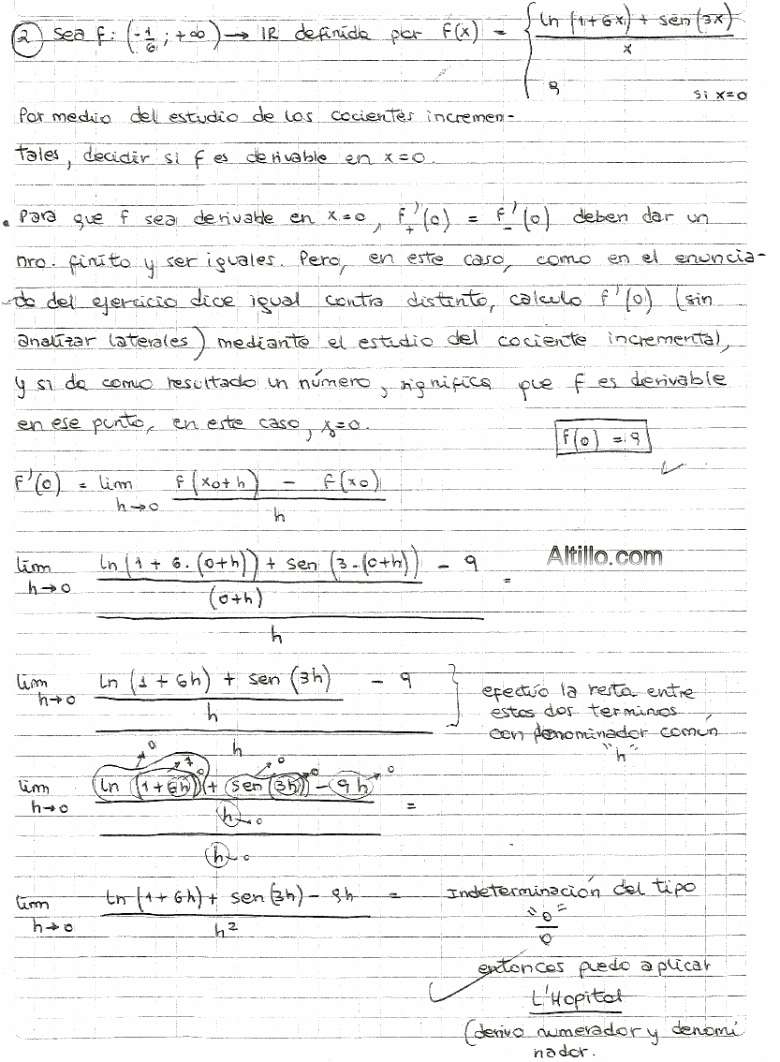 ② Sea f: (-1/6 ; +∞) → IR definida por f(x) = { (ln (1+6x) + sen (3x)) / x
9 si x=0
Por medio del estudio de los cocientes incremen-
tales, decidir si f es derivable en x=0.
• Para que f sea derivable en x=0, f₊'(0) = f₋'(0) deben dar un
nro. finito y ser iguales. Pero, en este caso, como en el enuncia-
do del ejercicio dice igual contra distinto, calculo f'(0) (sin
analizar laterales) mediante el estudio del cociente incremental,
y si da como resultado un número, significa que f es derivable
en ese punto, en este caso, x=0.
f(0) = 9 ✓
f'(0) = lim h→0 (f(x0+h) - f(x0)) / h
Altillo.com
lim h→0 ((ln (1 + 6.(0+h)) + sen (3.(0+h))) / (0+h) - 9) / h =
lim h→0 ((ln (1 + 6h) + sen (3h)) / h - 9) / h } efectúo la resta entre
estos dos terminos
con denominador común
"h"
lim h→0 ((ln (1+6h) + sen (3h) - 9h) / h) / h =
lim h→0 (ln (1+6h) + sen (3h) - 9h) / h² = Indeterminación del tipo
"0/0"
entonces puedo aplicar
✓ L'Hopital
(derivo numerador y denomi
nador.